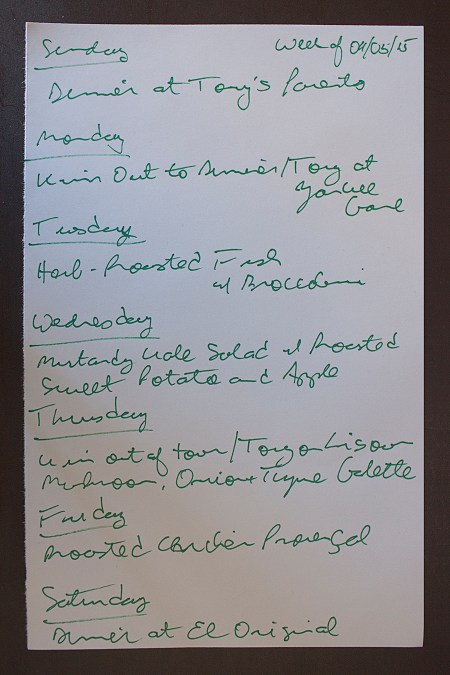 Sunday Week of 04/05/15
Dinner at Tony's Parents
Monday
Kim Out to Dinner/Tony at
Yankee
Game
Tuesday
Herb-Roasted Fish
w/ Broccolini
Wednesday
Mustardy Kale Salad w/ Roasted
Sweet Potato and Apple
Thursday
Kim out of town/Tony on his own
Mushroom, Onion + Thyme Galette
Friday
Roasted Chicken Provençal
Saturday
Dinner at El Original